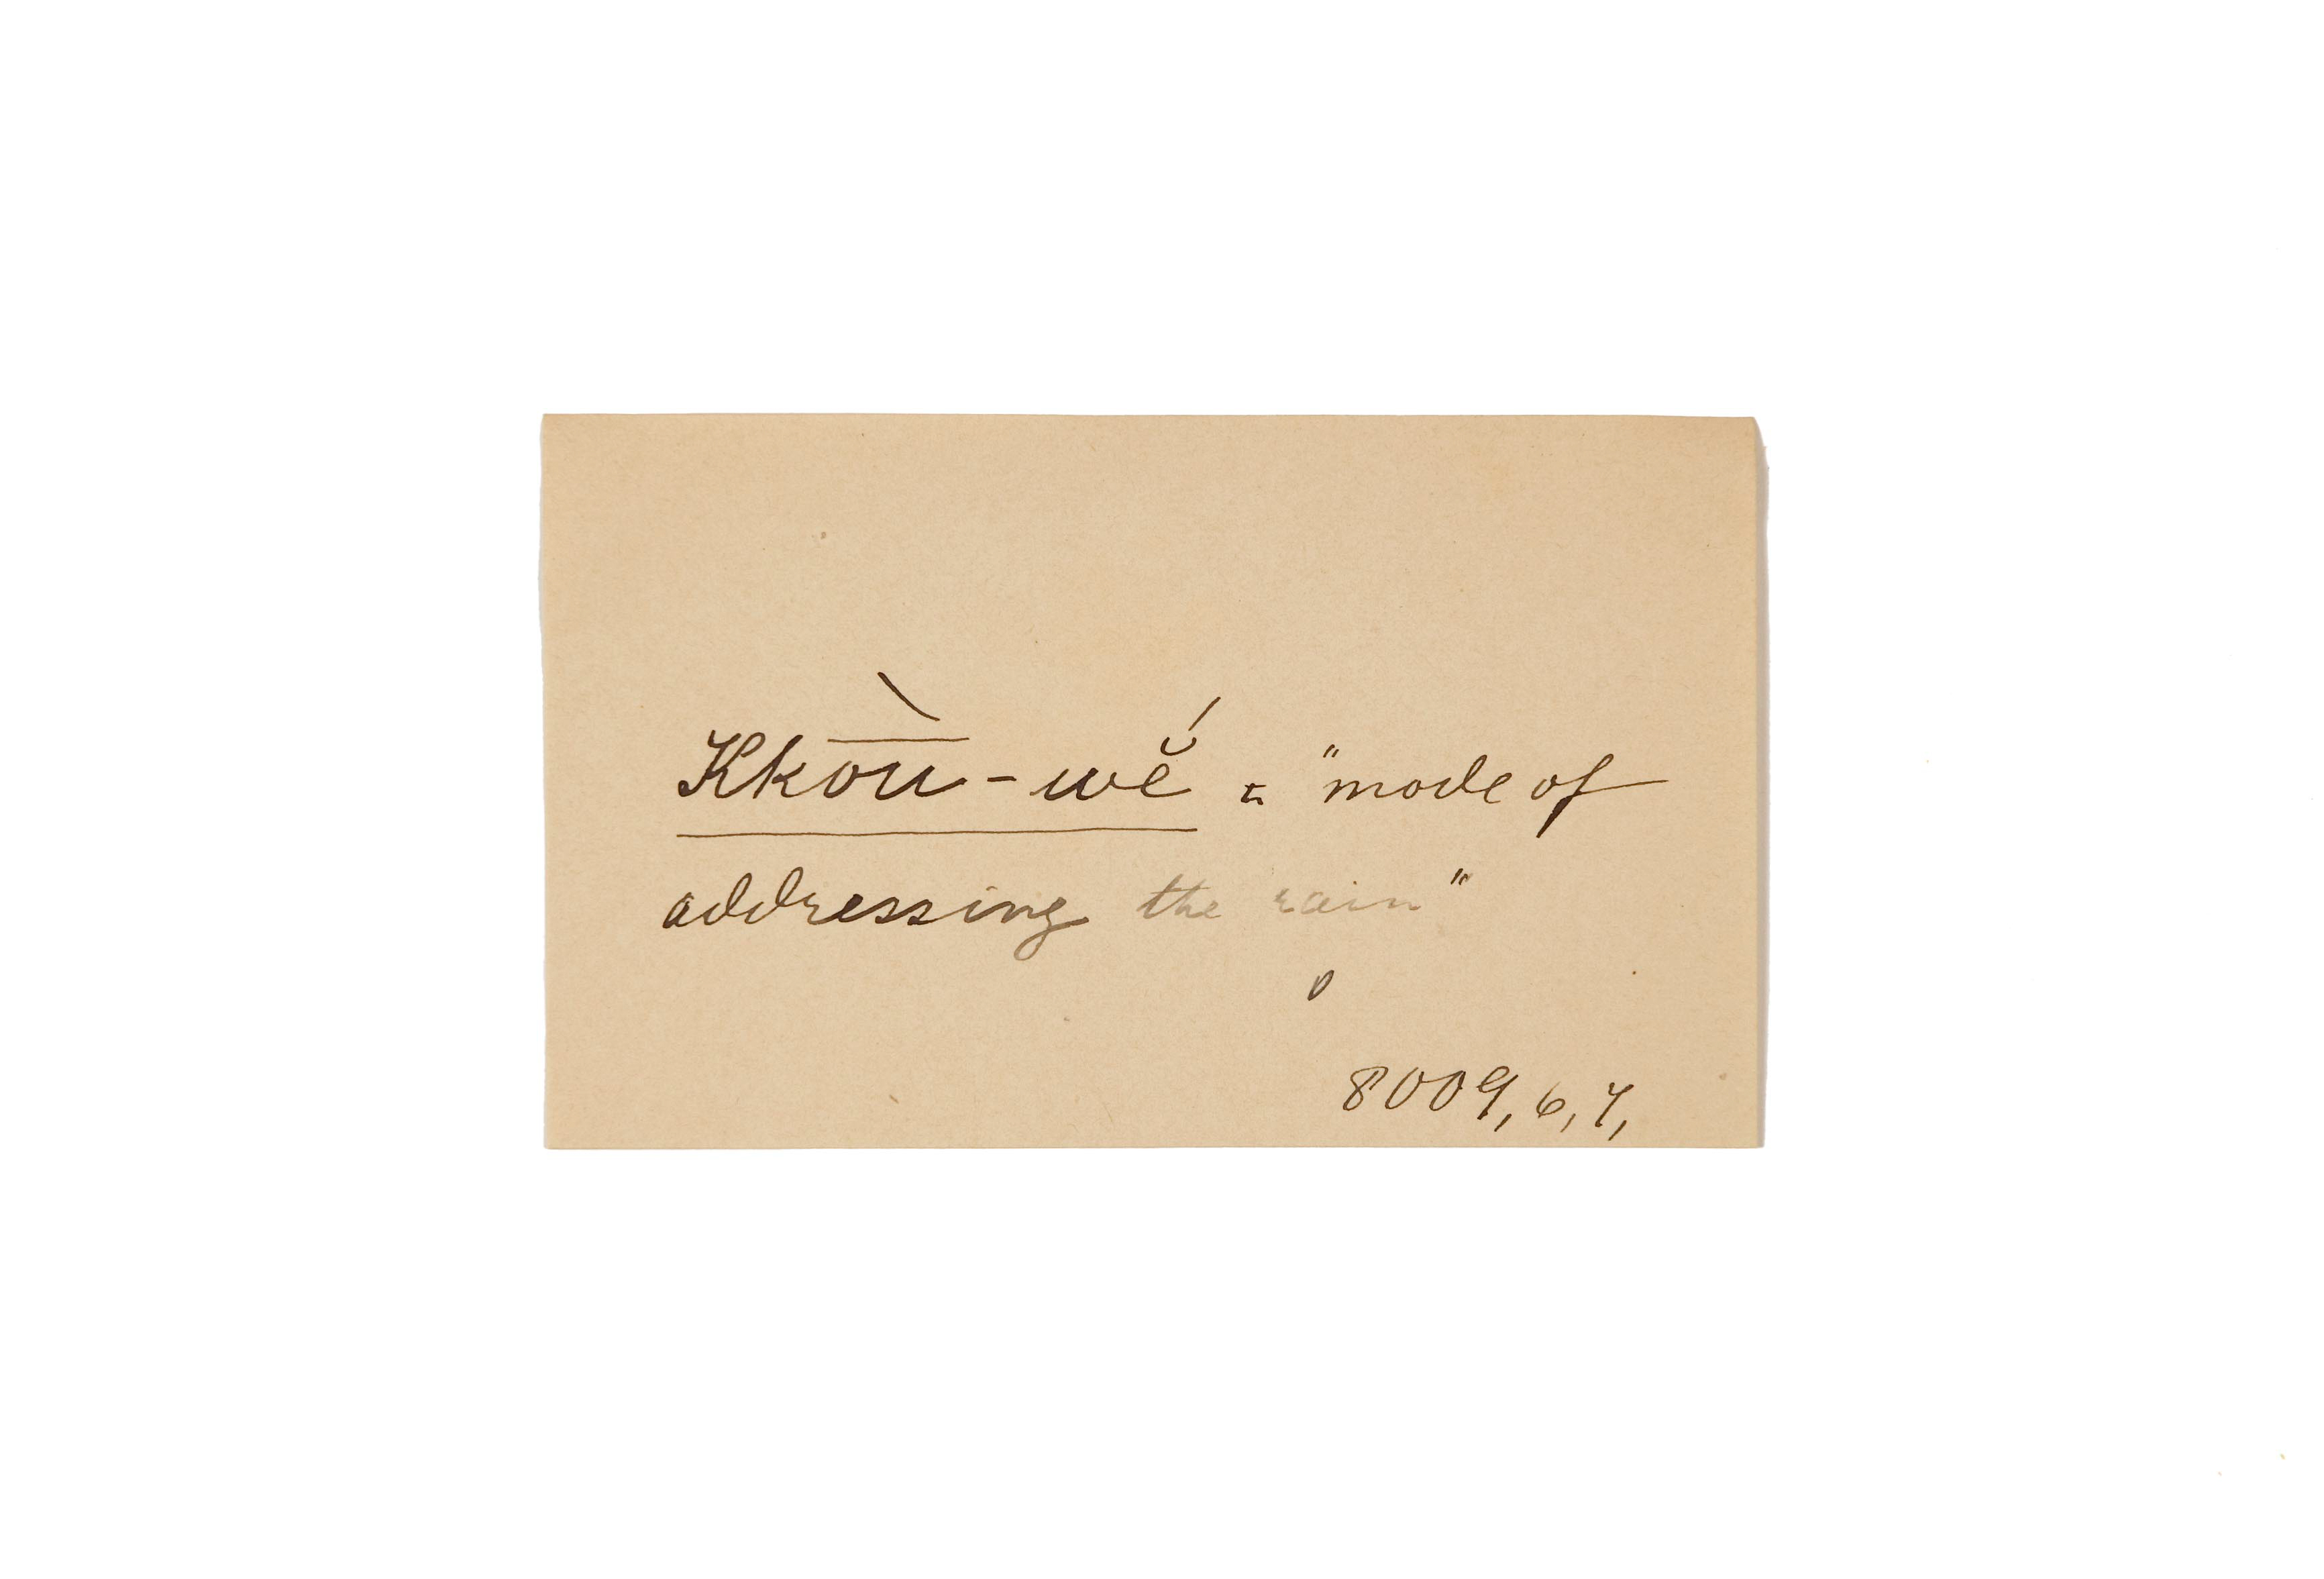 Kko͞ù-wĕ́ = "mode of
addressing the rain"
8009, 6, 7,